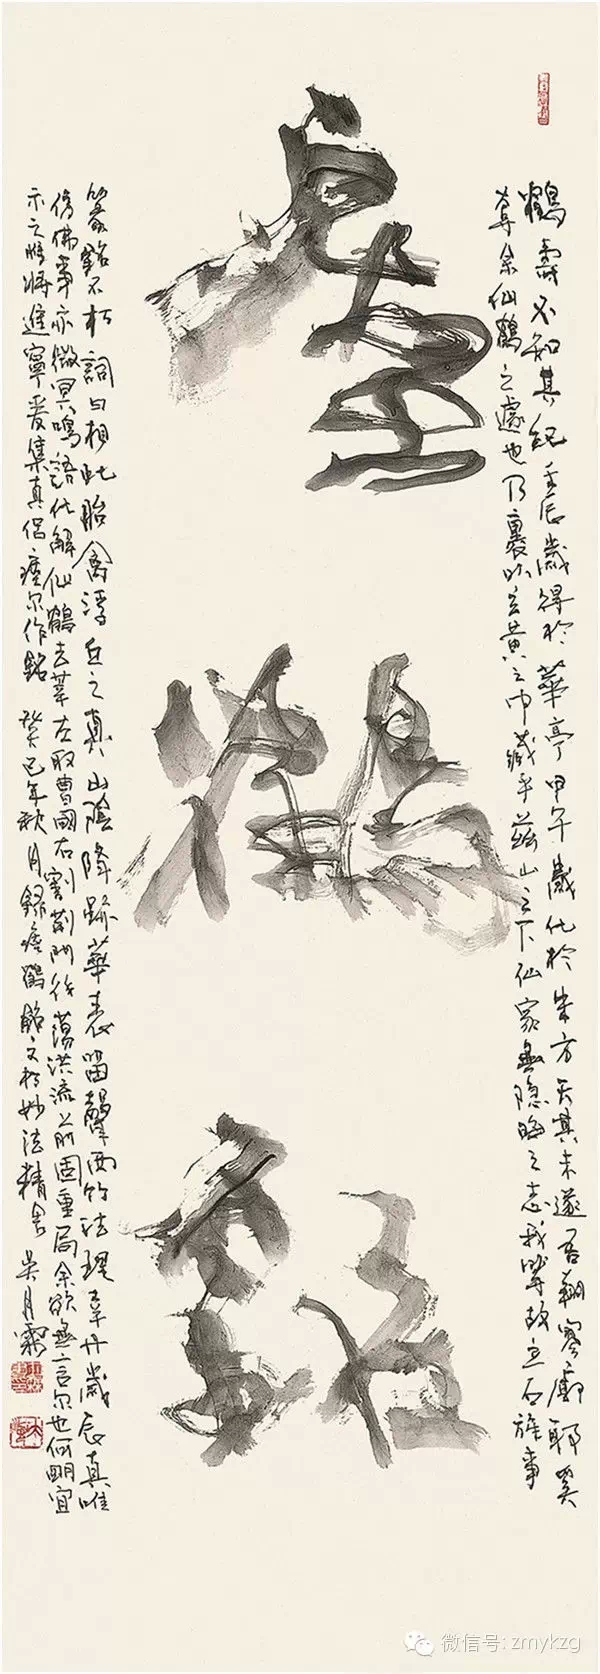 鶴壽不知其紀壬辰歲得於華亭甲午歲化於朱方天其未遂吾翔寥廓耶奚
奪余仙鶴之遽也乃裹以玄黄之巾藏乎茲山之下仙家無隐晦之志我等故立石旌事
瘞鶴銘
篆銘不朽詞曰相此胎禽浮丘之真山陰降跡華表留聲西竹法理幸丹歲辰真唯
仿佛事亦微冥鳴語化解仙鶴去莘左取曹國右割荆門後蕩洪流前固重局余欲無言尔也何明宜
示之唯將進寧爰集真侣瘞尔作銘 癸巳年秋月録瘞鶴銘文於妙法精舍 吴月霖
微信号: zmykzg